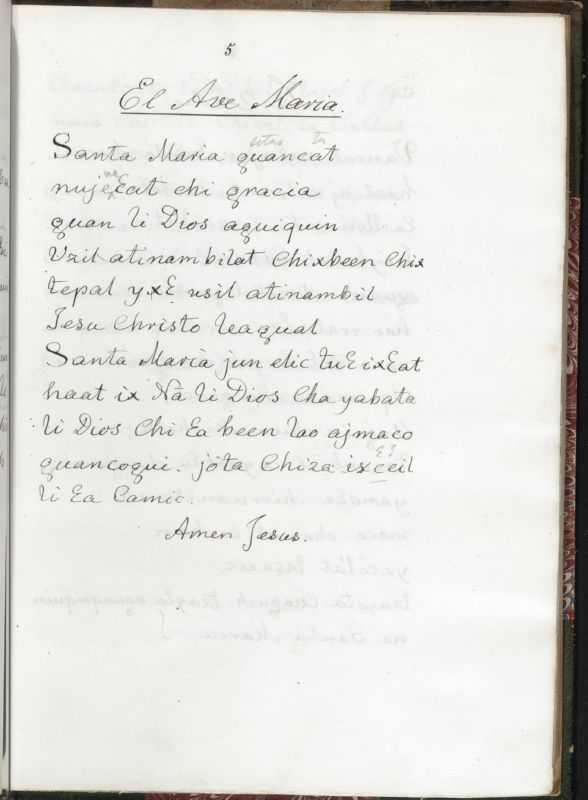 5
El Ave Maria.
estas tu
Santa Maria quancat
nujenaƐcat chi gracia
quan li Dios aquiquin
Vzil atinambilat Chixbeen Chix
tepal yxƐ usil atinambil
Jesu Christo leaqual
Santa Maria jun elic tuƐixƐat
haat ix Na li Dios Cha yabata
li Dios Chi Ɛa been lao ajmaco
quancoqui. jota Chiza ixceil
li Ɛa Camic.
Amen Jesus.